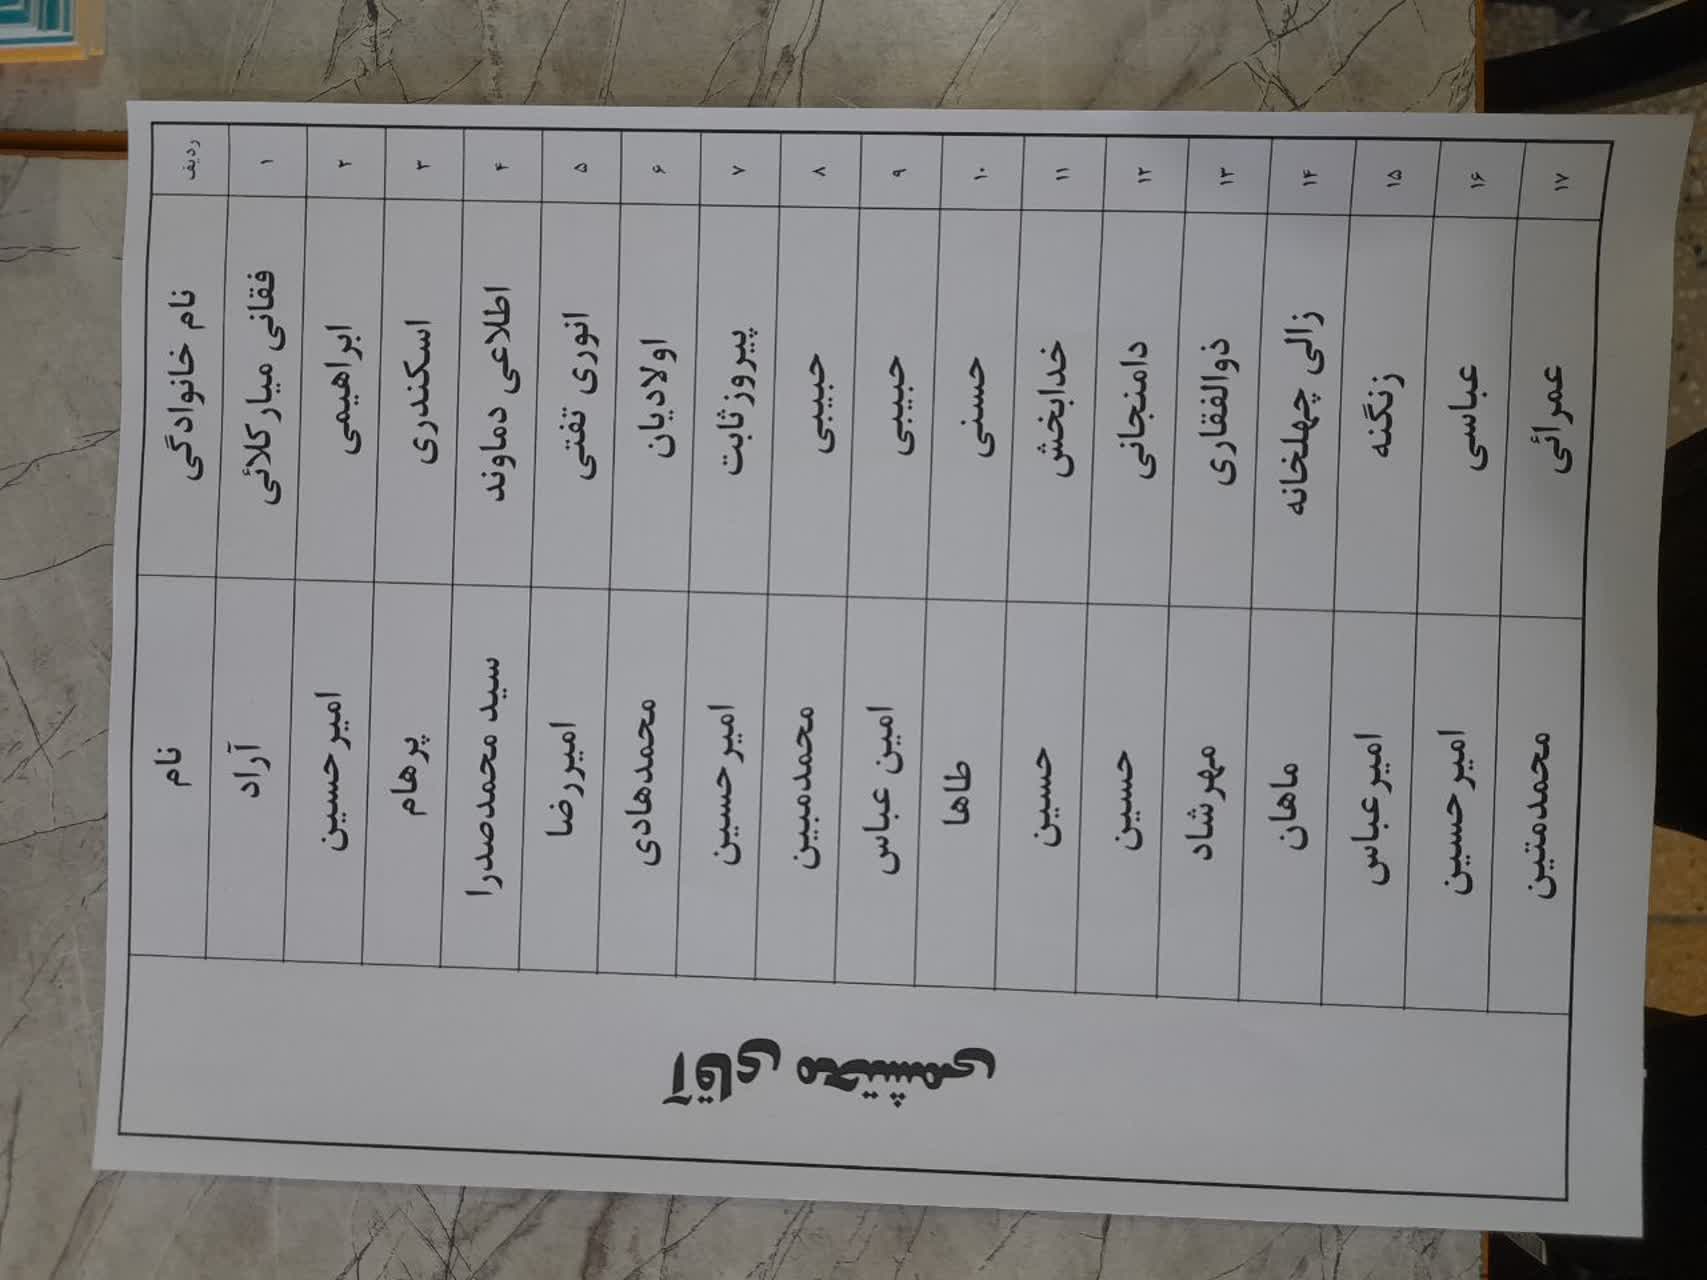 ردیف نام خانوادگی نام
۱ فقانی میارکلائی آراد
۲ ابراهیمی امیرحسین
۳ اسکندری پرهام
۴ اطلاعی دماوند سید محمدصدرا
۵ انوری تفتی امیررضا
۶ اولادیان محمدهادی
۷ پیروزثابت امیرحسین
۸ حبیبی محمدمبین
۹ حبیبی امین عباس
۱۰ حسنی طاها
۱۱ خدابخش حسین
۱۲ دامنجانی حسین
۱۳ ذوالفقاری مهرشاد
۱۴ زالی چهلخانه ماهان
۱۵ زنگنه امیرعباس
۱۶ عباسی امیرحسین
۱۷ عمرائی محمدمتین
آقای محتشمی